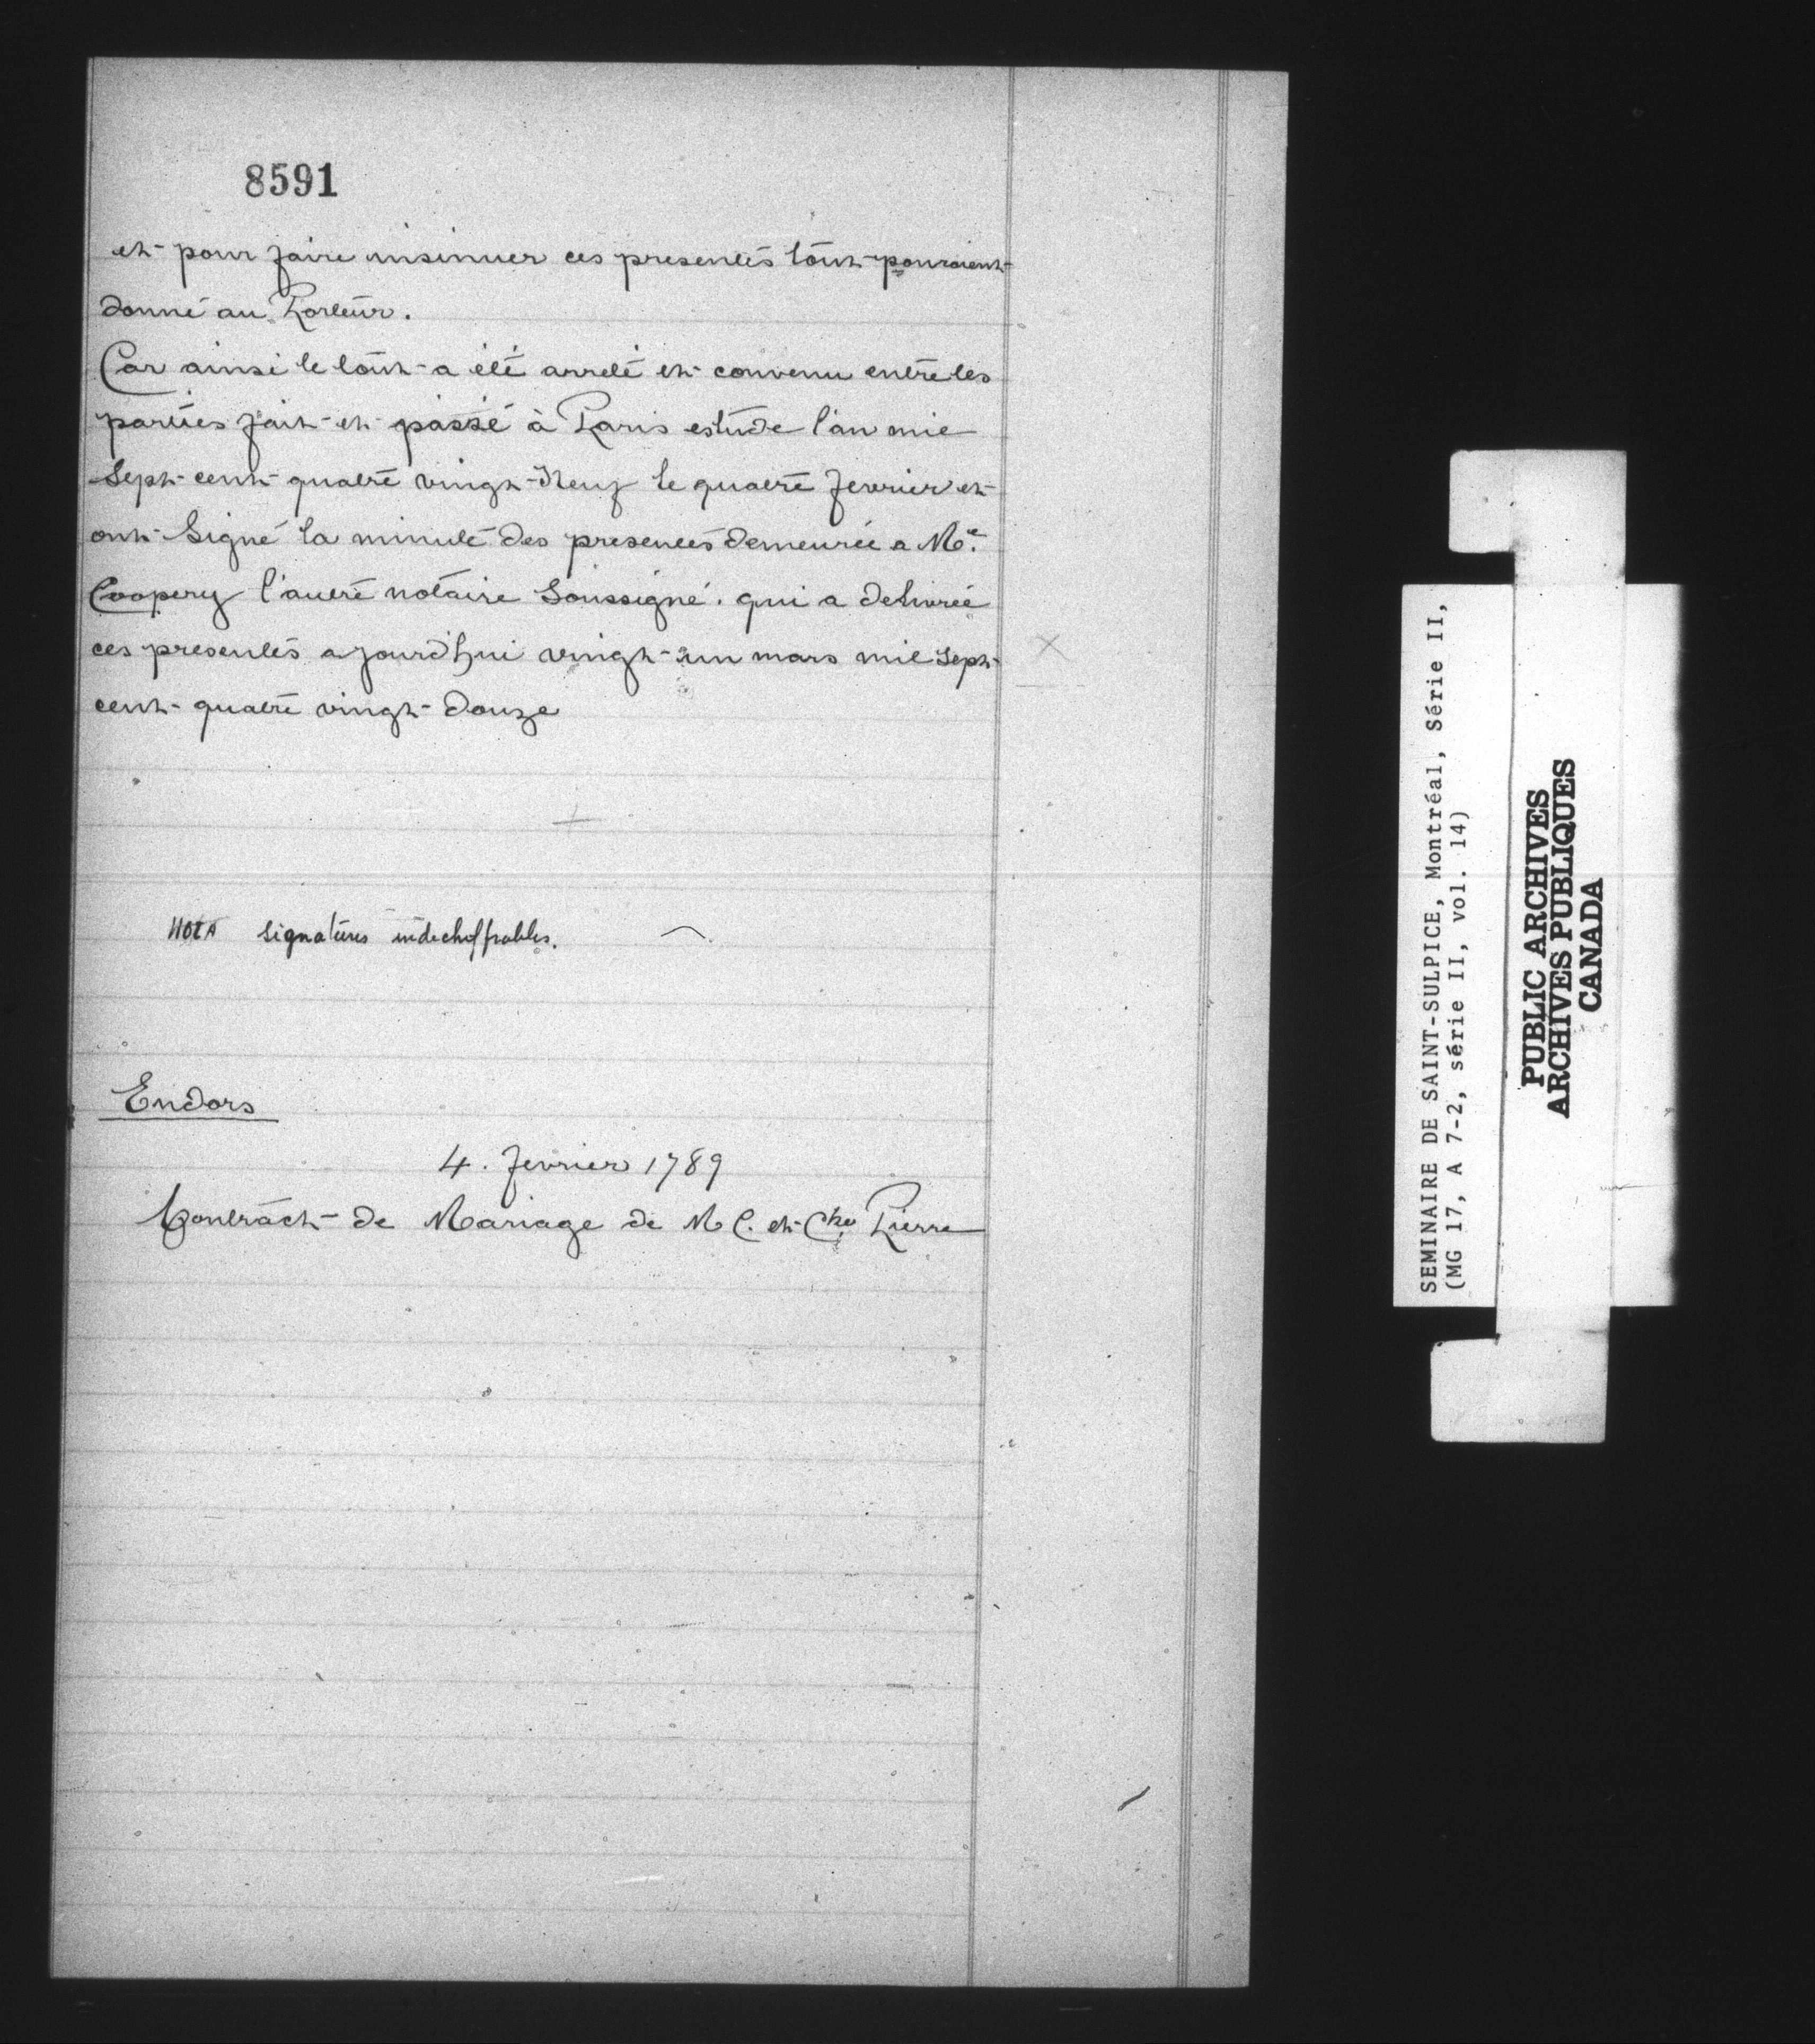 8591
et pour faire insinuer ces presentes tout pouroient
donné au Porteur.
Car ainsi le tout a été arreté et convenu entre les
parties fait et passé à Paris estude l'an mil
Sept cent quatre vingt Neuf le quatre fevrier et
ont Signé la minute des presentes demeurée a Me.
Coopery l'autre notaire Soussigné. qui a delivrée
ces presentes ajourd'hui vingt un mars mil Sept
cent quatre vingt douze
NOTA signatures indechiffrables.
Endors
4. fevrier 1789
Contract de Mariage de M C. et Che Pierre
SEMINAIRE DE SAINT-SULPICE, Montréal, Série II,
(MG 17, A 7-2, série II, vol. 14)
PUBLIC ARCHIVES
ARCHIVES PUBLIQUES
CANADA